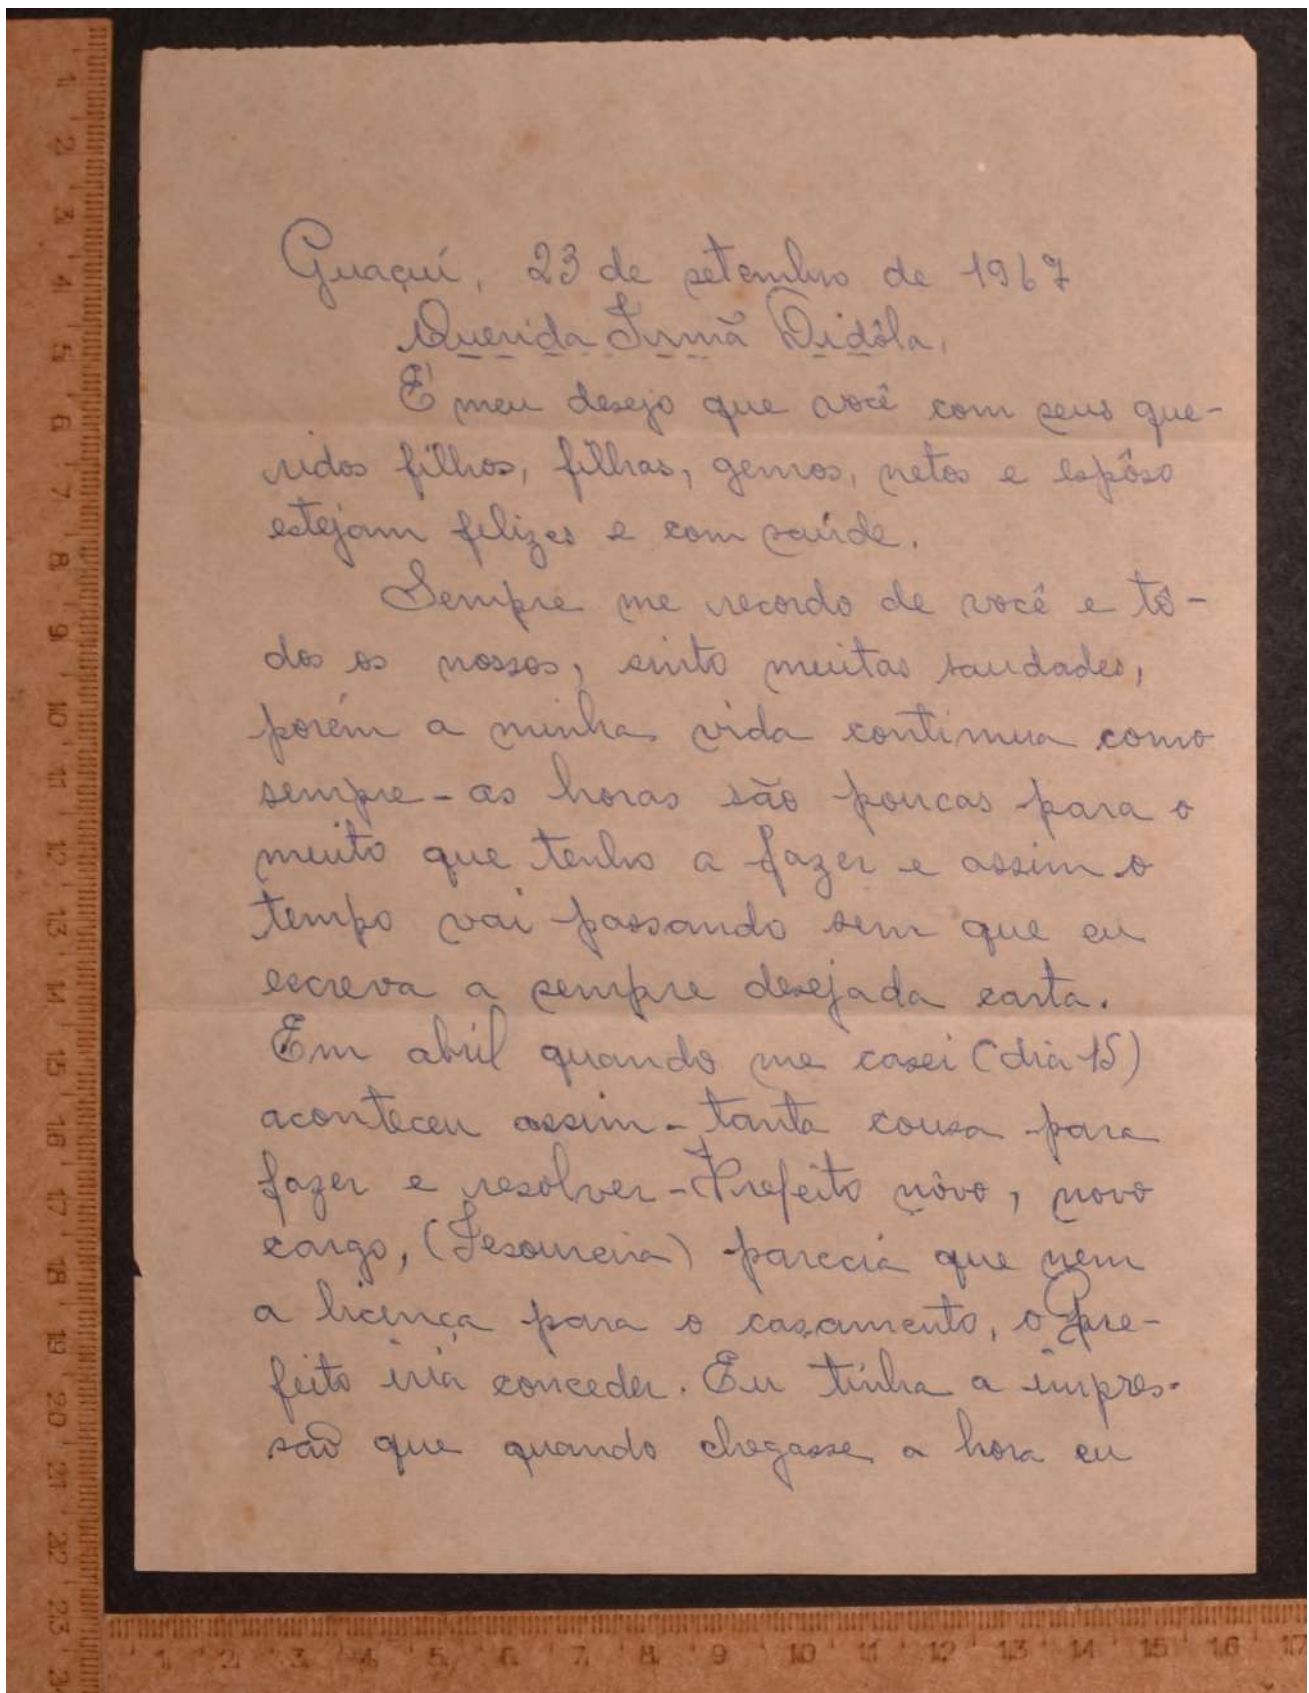 Guaçuí, 23 de setembro de 1967
Querida Irmã Didôla,
É meu desejo que você com seus que-
ridos filhos, filhas, genros, netos e espôso
estejam felizes e com saúde.
Sempre me recordo de você e tô-
dos os nossos, sinto muitas saudades,
porém a minha vida continua como
sempre - as horas são poucas para o
muito que tenho a fazer e assim o
tempo vai passando sem que eu
escreva a sempre desejada carta.
Em abril quando me casei (dia 15)
aconteceu assim - tanta cousa para
fazer e resolver - Prefeito nôvo, novo
cargo, (Tesoureira) parecia que nem
a licença para o casamento, o Pre-
feito iria conceder. Eu tinha a impres-
são que quando chegasse a hora eu
1 2 3 4 5 6 7 8 9 10 11 12 13 14 15 16 17 18 19 20 21 22 23
1 2 3 4 5 6 7 8 9 10 11 12 13 14 15 16 17